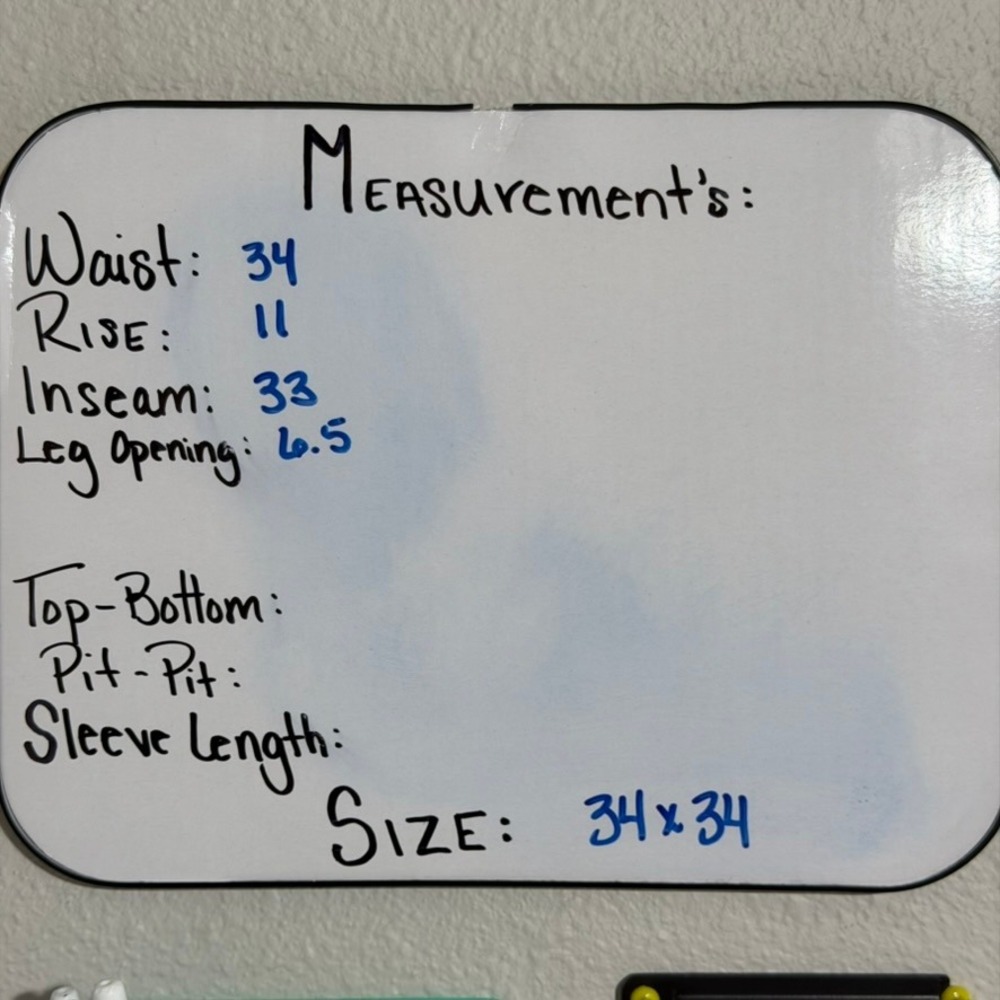 MEASUrement's:
Waist: 34
RISE: 11
Inseam: 33
Leg Opening: 6.5
Top-Bottom:
Pit-Pit:
Sleeve Length:
SIZE: 34x34